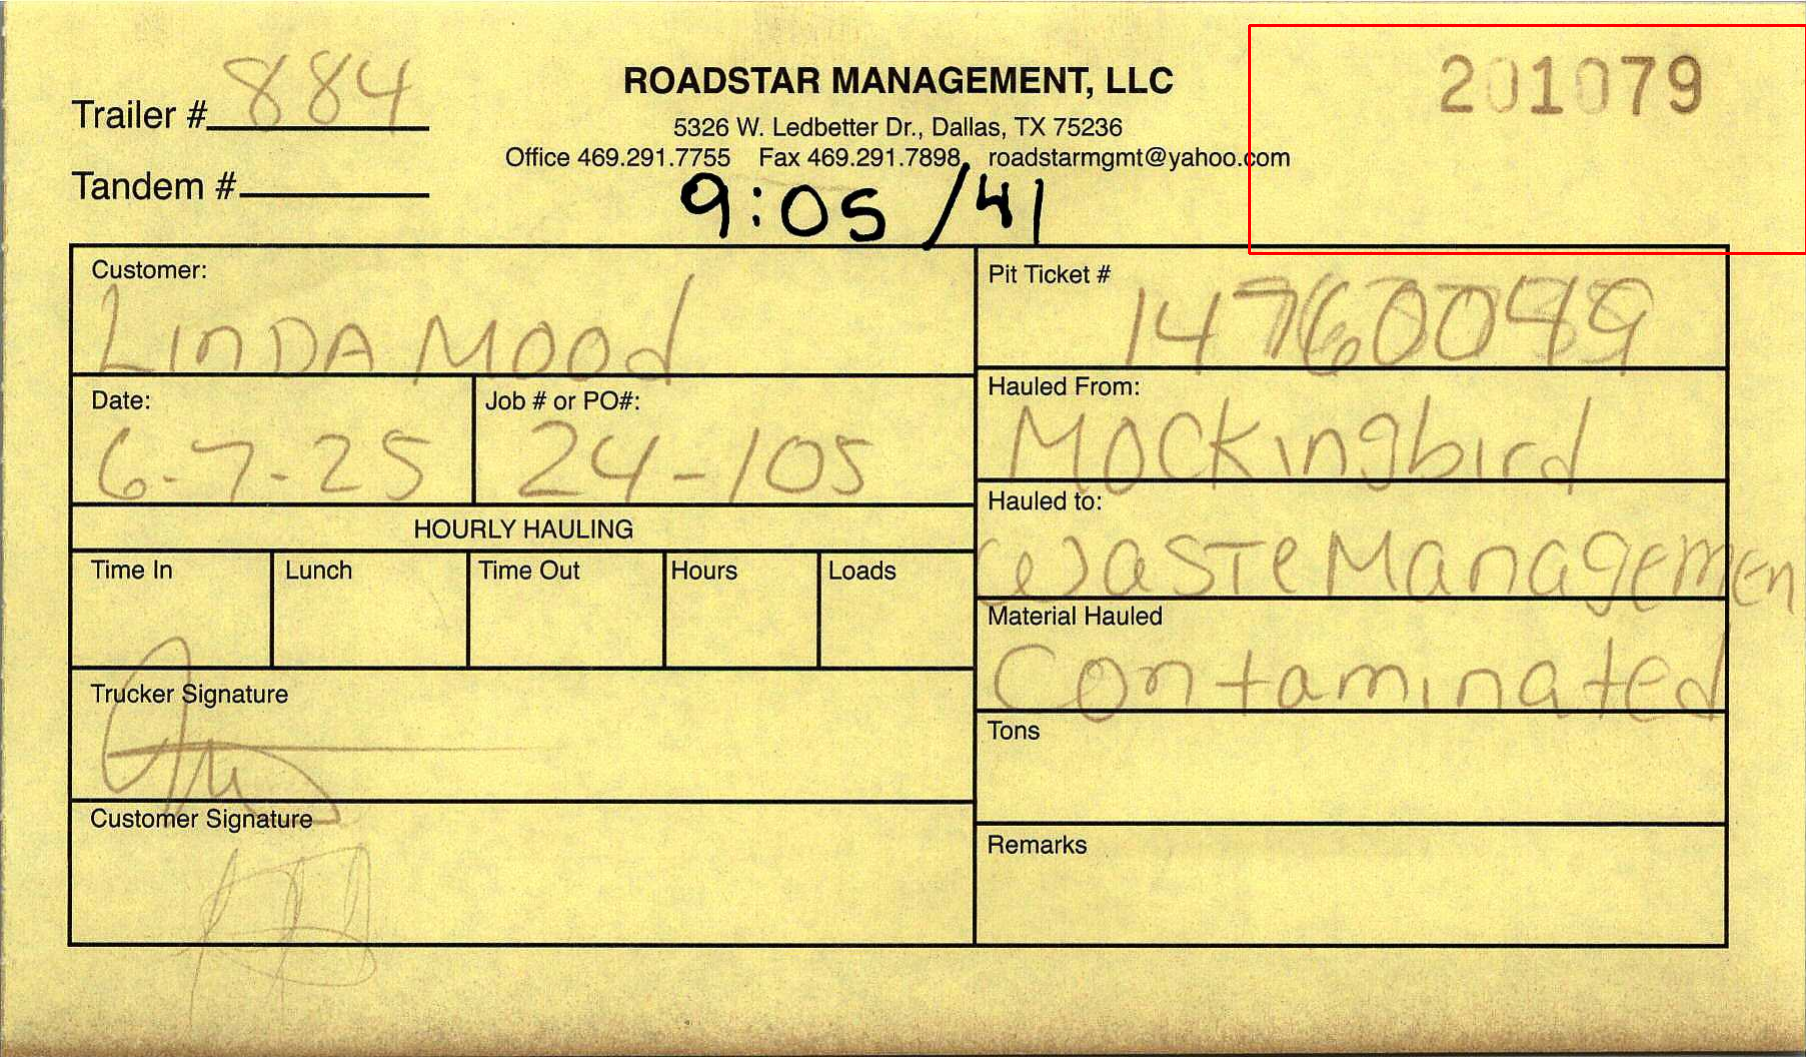 Trailer # 884
ROADSTAR MANAGEMENT, LLC
201079
5326 W. Ledbetter Dr., Dallas, TX 75236
Office 469.291.7755 Fax 469.291.7898 roadstarmgmt@yahoo.com
Tandem #
9:05 /41
Customer:
LINDA MOOd
Pit Ticket #
Date:
6-7-25
Job # or PO#:
24-105
Hauled From:
Mockingbird
HOURLY HAULING
Hauled to:
Waste Managemen
Time In
Lunch
Time Out
Hours
Loads
Material Hauled
Contaminated
Trucker Signature
Tons
Customer Signature
Remarks